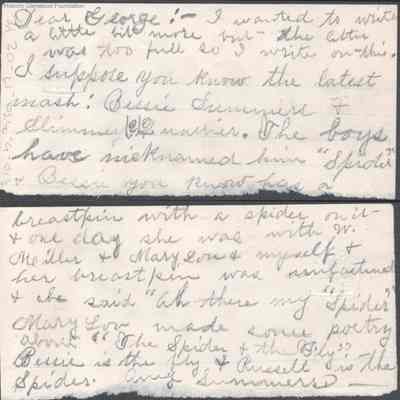 Dear George:- I wanted to write
a little bit more but the letter
was too full so I write on this.
I suppose you know the latest
mash! Bessie Summers &
Slimmer Quarrier. The boys
have nicknamed him "Spider"
& Bessie you know has a
breastpin with a spider on it
& one day she was with W.
Miller & Mary Lou & myself &
her breastpin was unfastened
& she said "Ah there my "Spider"
Mary Lou made some poetry
about "The Spider & the Fly"
Bessie is the fly & Russell is the
Spider. Summers